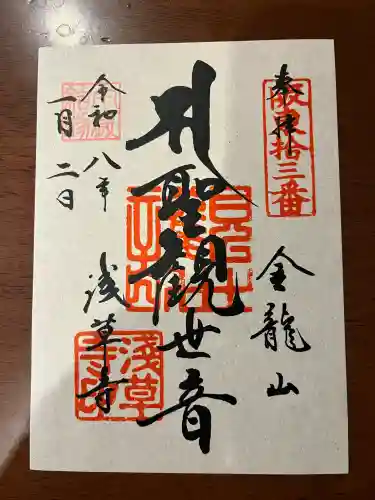 奉拝
坂東拾三番
金龍山
聖観世音
浅草寺
令和八年
一月二日
浅草寺